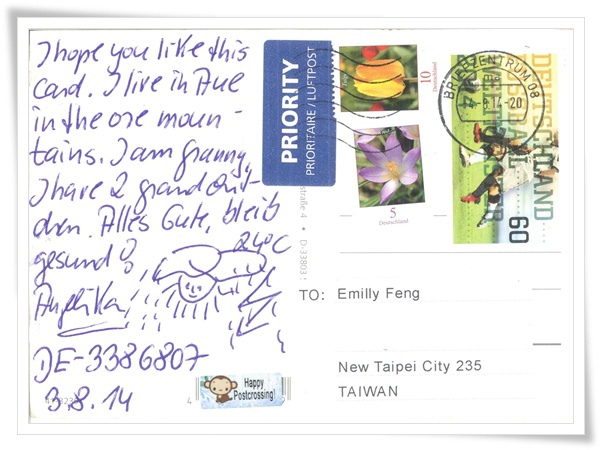 I hope you like this
card. I live in Aue
in the ore moun-
tains. I am granny,
I have 2 grandchil-
dren. Alles Gute, bleib
gesund!
24°C
Angelika
DE-3386807
3.8.14
PRIORITY
PRIORITAIRE / LUFTPOST
10
Deutschland
5
Deutschland
BRIEFZENTRUM 08
-4.8.14-20
DEUTSCHLAND
60
straße 4 • D-33803
TO: Emilly Feng
New Taipei City 235
TAIWAN
4
Happy
Postcrossing!